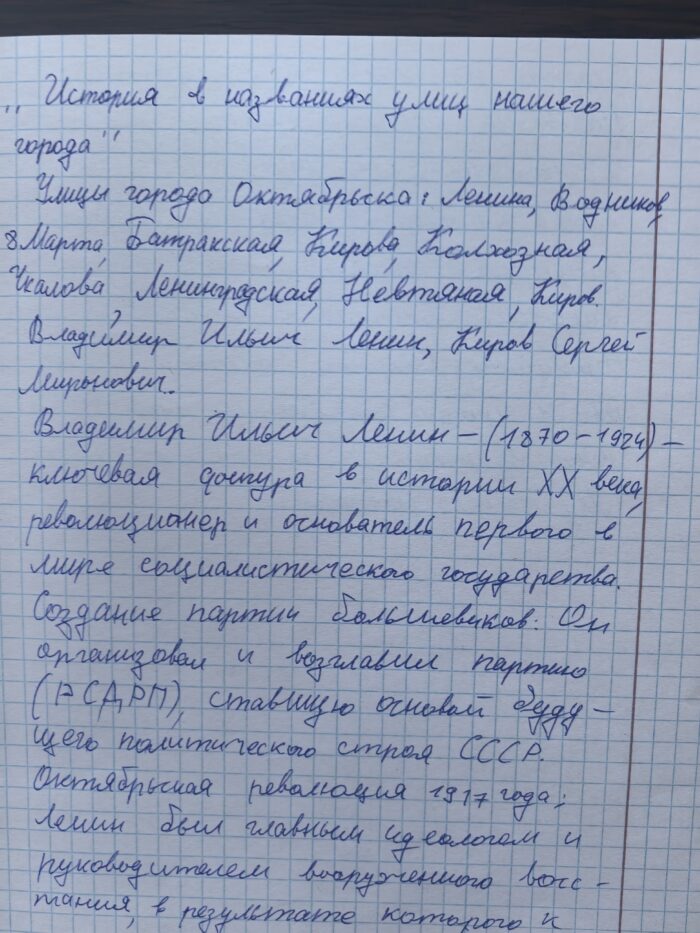 „История в названиях улиц нашего
города"
Улицы города Октябрьска: Ленина, Водников,
8 Марта, Батракская, Кирова, Колхозная,
Чкалова, Ленинградская, Нефтяная, Киров.
Владимир Ильич Ленин, Киров Сергей
Миронович.
Владимир Ильич Ленин – (1870–1924) –
ключевая фигура в истории XX века,
революционер и основатель первого в
мире социалистического государства.
Создание партии большевиков: Он
организовал и возглавил партию
(РСДРП), ставшую основой буду–
щего политического строя СССР.
Октябрьская революция 1917 года:
Ленин был главным идеологом и
руководителем вооруженного восс–
тания, в результате которого к